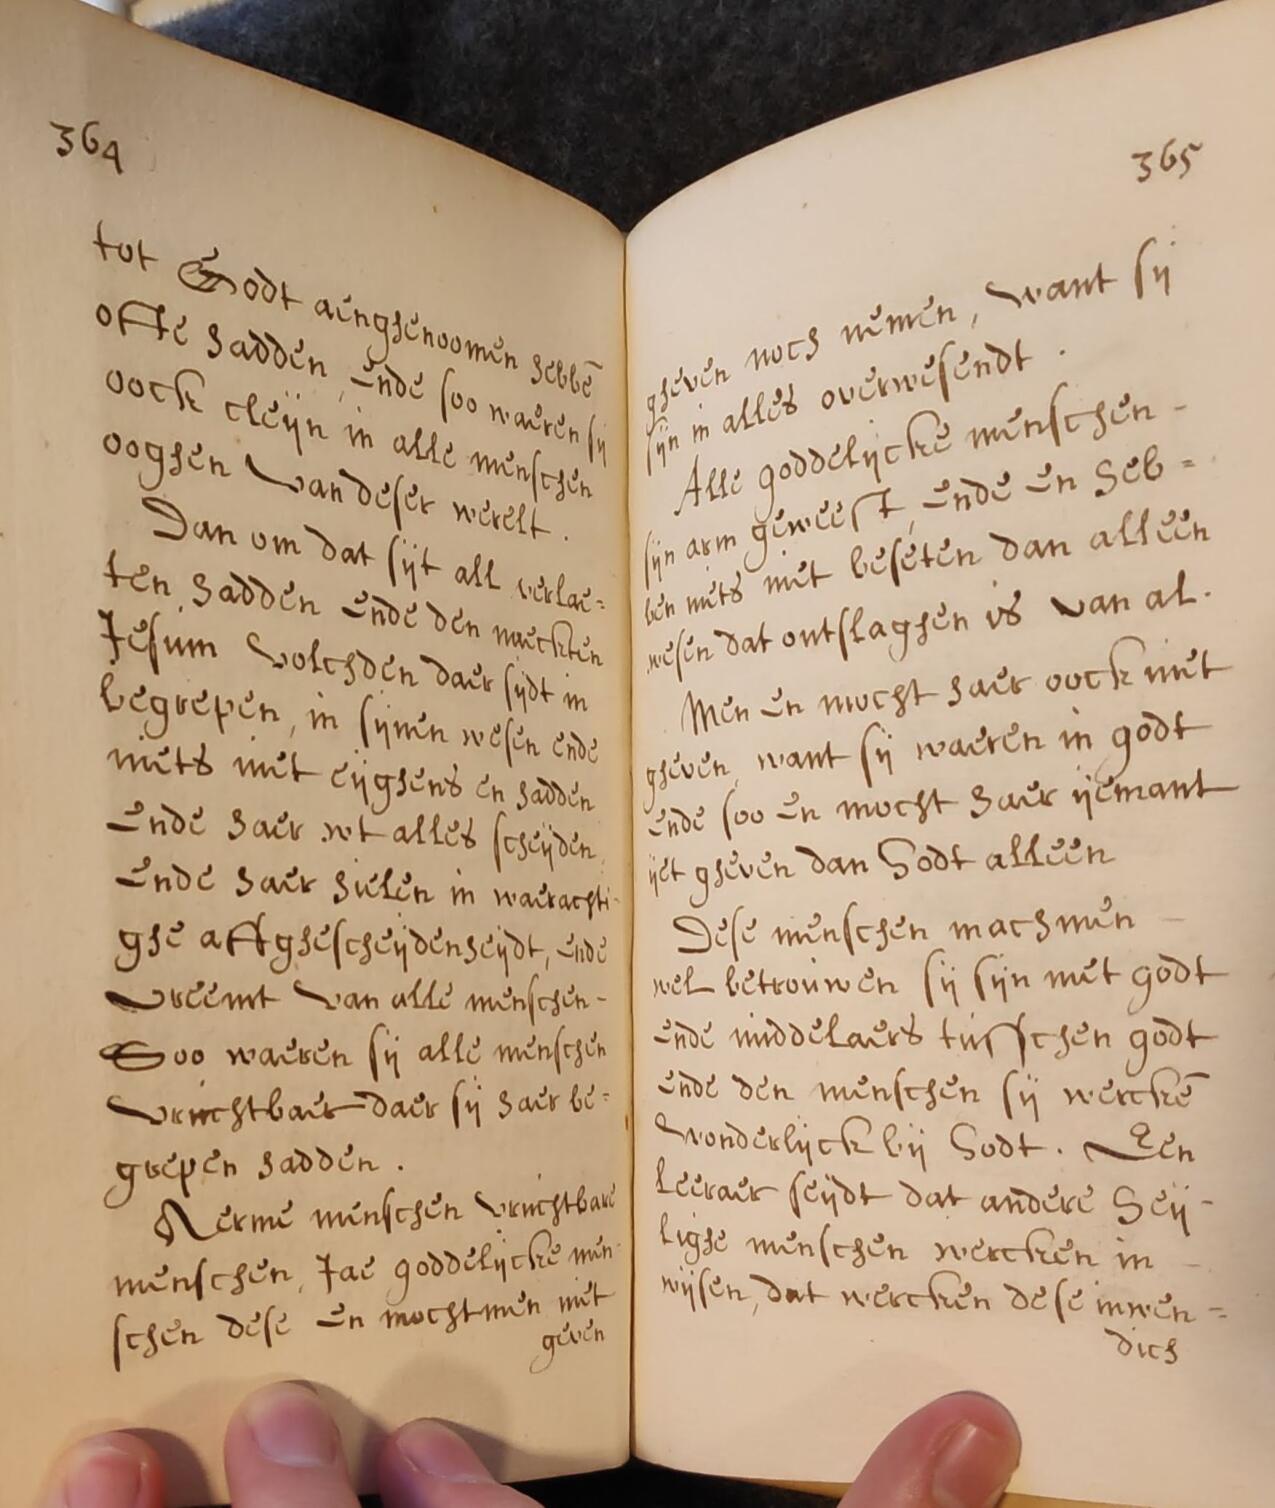 364
tot Godt aenghenoomen hebbē
ofte hadden, ende soo waeren sij
oock cleijn in alle menschen
ooghen van deser werelt.
Dan om dat sijt all verlae=
ten hadden ende den naeckten
Jesum volchden daer sijdt in
begrepen, in sijnen wesen ende
niets niet eijghens en hadden
ende haer wt alles scheijden,
ende haer sielen in waerachti-
ghe affghescheijdenheijdt, ende
vreemt van alle menschen-
Soo waeren sij alle menschen
vruchtbaer daer sij haer be=
grepen hadden.
Aerme menschen vruchtbare
menschen, Jae goddelijcke men-
schen dese en mochtmen niet
geven
365
gheven noch nemen, want sij
sijn in alles overwesendt.
Alle goddelijcke menschen-
sijn arm geweest, ende en heb=
ben niets niet beseten dan alleen
wesen dat ontslaghen is van al.
Men en mocht haer oock niet
gheven, want sij waeren in godt
ende soo en mocht haer ijemant
ijet gheven dan Godt alleen
Dese menschen machmen
wel betrouwen sij sijn met godt
ende middelaers tusschen godt
ende den menschen sij werckē
wonderlijck bij Godt. Een
leeraer seijdt dat andere heij-
lighe menschen wercken in
wijsen, dat wercken dese inwen=
dich